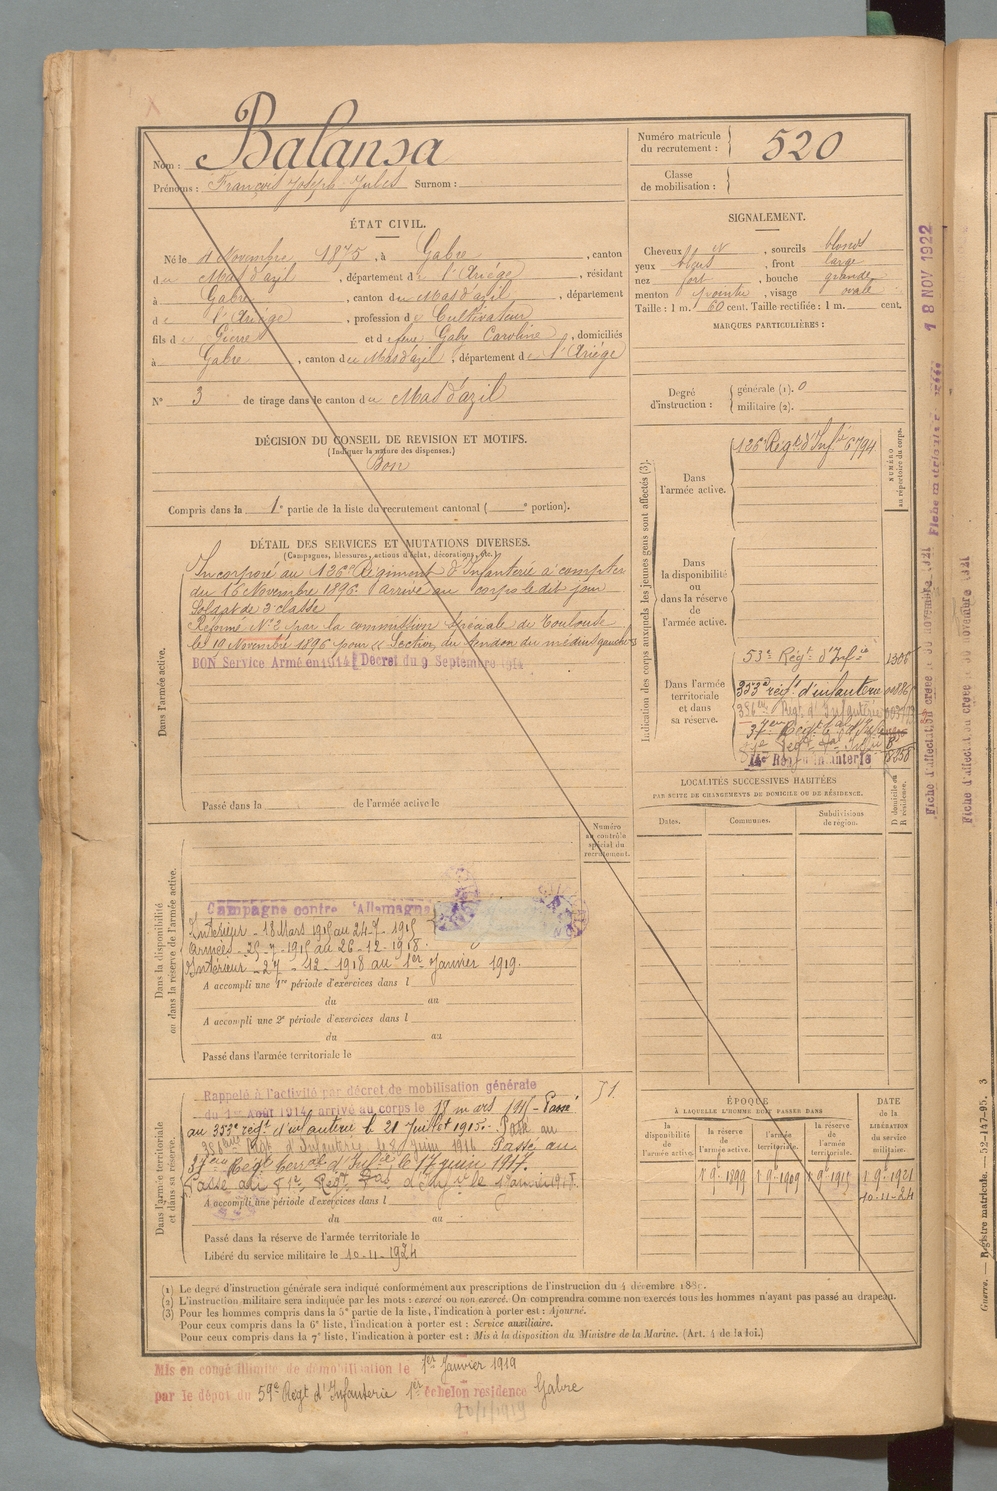 Nom : Balansa
Prénoms : François Joseph Jules Surnom :
Numéro matricule du recrutement : 520
Classe de mobilisation :
ÉTAT CIVIL.
Né le Novembre 1875, à Gabre, canton
du Mas d'azil, département de l'Ariège, résidant
à Gabre, canton du Mas d'azil, département
de l'Ariège, profession de Cultivateur
fils de Pierre et de feue Gaby Caroline, domiciliés
à Gabre, canton du Mas d'azil, département de l'Ariége
N° 3 de tirage dans le canton du Mas d'azil
SIGNALEMENT.
Cheveux, sourcils blonds
yeux bleus, front large
nez fort, bouche grande
menton pointu, visage ovale
Taille : 1 m. 60 cent. Taille rectifiée : 1 m. cent.
MARQUES PARTICULIÈRES :
Degré d'instruction : générale (1). 0
militaire (2).
DÉCISION DU CONSEIL DE REVISION ET MOTIFS.
(Indiquer la nature des dispenses.)
Bon
Compris dans la 1e partie de la liste du recrutement cantonal ( e portion).
DÉTAIL DES SERVICES ET MUTATIONS DIVERSES.
(Campagnes, blessures, actions d'éclat, décorations, etc.)
Dans l'armée active.
Incorporé au 126e Régiment d'Infanterie à compter
du 16 Novembre 1896. Arrivé au corps le dit jour
Soldat de 2e classe
Réformé N° 2 par la commission spéciale de Toulouse
le 19 Novembre 1896 pour Section du tendon du médius gauche
BON Service Armé en 1914 Décret du 9 Septembre 1914
Passé dans la de l'armée active le
Indication des corps auxquels les jeunes gens sont affectés (3).
NUMÉRO au répertoire du corps.
Dans l'armée active. 126 Régt d'Infie 6794
Dans la disponibilité ou dans la réserve de l'armée active.
Dans l'armée territoriale et dans sa réserve.
53e Régt d'Infie 1306
353e régt d'infanterie
Régt d'Infanterie
14e Rég d'Infanterie
LOCALITÉS SUCCESSIVES HABITÉES
PAR SUITE DE CHANGEMENTS DE DOMICILE OU DE RÉSIDENCE.
D domicile ou R résidence.
Dates. Communes. Subdivisions de région.
Numéro au contrôle spécial du recrutement.
Dans la disponibilité ou dans la réserve de l'armée active.
Campagne contre l'Allemagne
Intérieur - 18 Mars 1915 au 24-7-1915
Armées - 25-7-1915 au 26-12-1918.
Intérieur - 27-12-1918 au 1er Janvier 1919.
A accompli une 1re période d'exercices dans l
du au
A accompli une 2e période d'exercices dans l
du au
Passé dans l'armée territoriale le
Dans l'armée territoriale et dans sa réserve.
Rappelé à l'activité par décret de mobilisation générale
du 1er Août 1914, arrivé au corps le 19 mars 1915 - Passé
au 353e régt d'infanterie le 21 Juillet 1915. Passé au
Régt d'Infanterie le juin 1916 Passé au
37eme Régt terral d'Infie, le 17 juin 1917.
Passé au Régt
A accompli une période d'exercices dans l
du au
Passé dans la réserve de l'armée territoriale le
Libéré du service militaire le 10-11-1924
ÉPOQUE
À LAQUELLE L'HOMME DOIT PASSER DANS
la disponibilité de l'armée active.
la réserve de l'armée active. 1 9e 1899
l'armée territoriale. 1 9e 1909
la réserve de l'armée territoriale. 1 9e 1915
DATE de la LIBÉRATION du service militaire. 1 9e 1921
10-11-24
(1) Le degré d'instruction générale sera indiqué conformément aux prescriptions de l'instruction du 4 décembre 1889.
(2) L'instruction militaire sera indiquée par les mots : exercé ou non exercé. On comprendra comme non exercés tous les hommes n'ayant pas passé au drapeau.
(3) Pour les hommes compris dans la 5e partie de la liste, l'indication à porter est : Ajourné.
Pour ceux compris dans la 6e liste, l'indication à porter est : Service auxiliaire.
Pour ceux compris dans la 7e liste, l'indication à porter est : Mis à la disposition du Ministre de la Marine. (Art. 4 de la loi.)
Mis en congé illimité de démobilisation le 1er Janvier 1919
par le dépôt du 59e Régt d'Infanterie 1er échelon residence Gabre
20/1/1919
18 NOV 1922
Guerre. — Registre matricule. — 52-147-95. 3